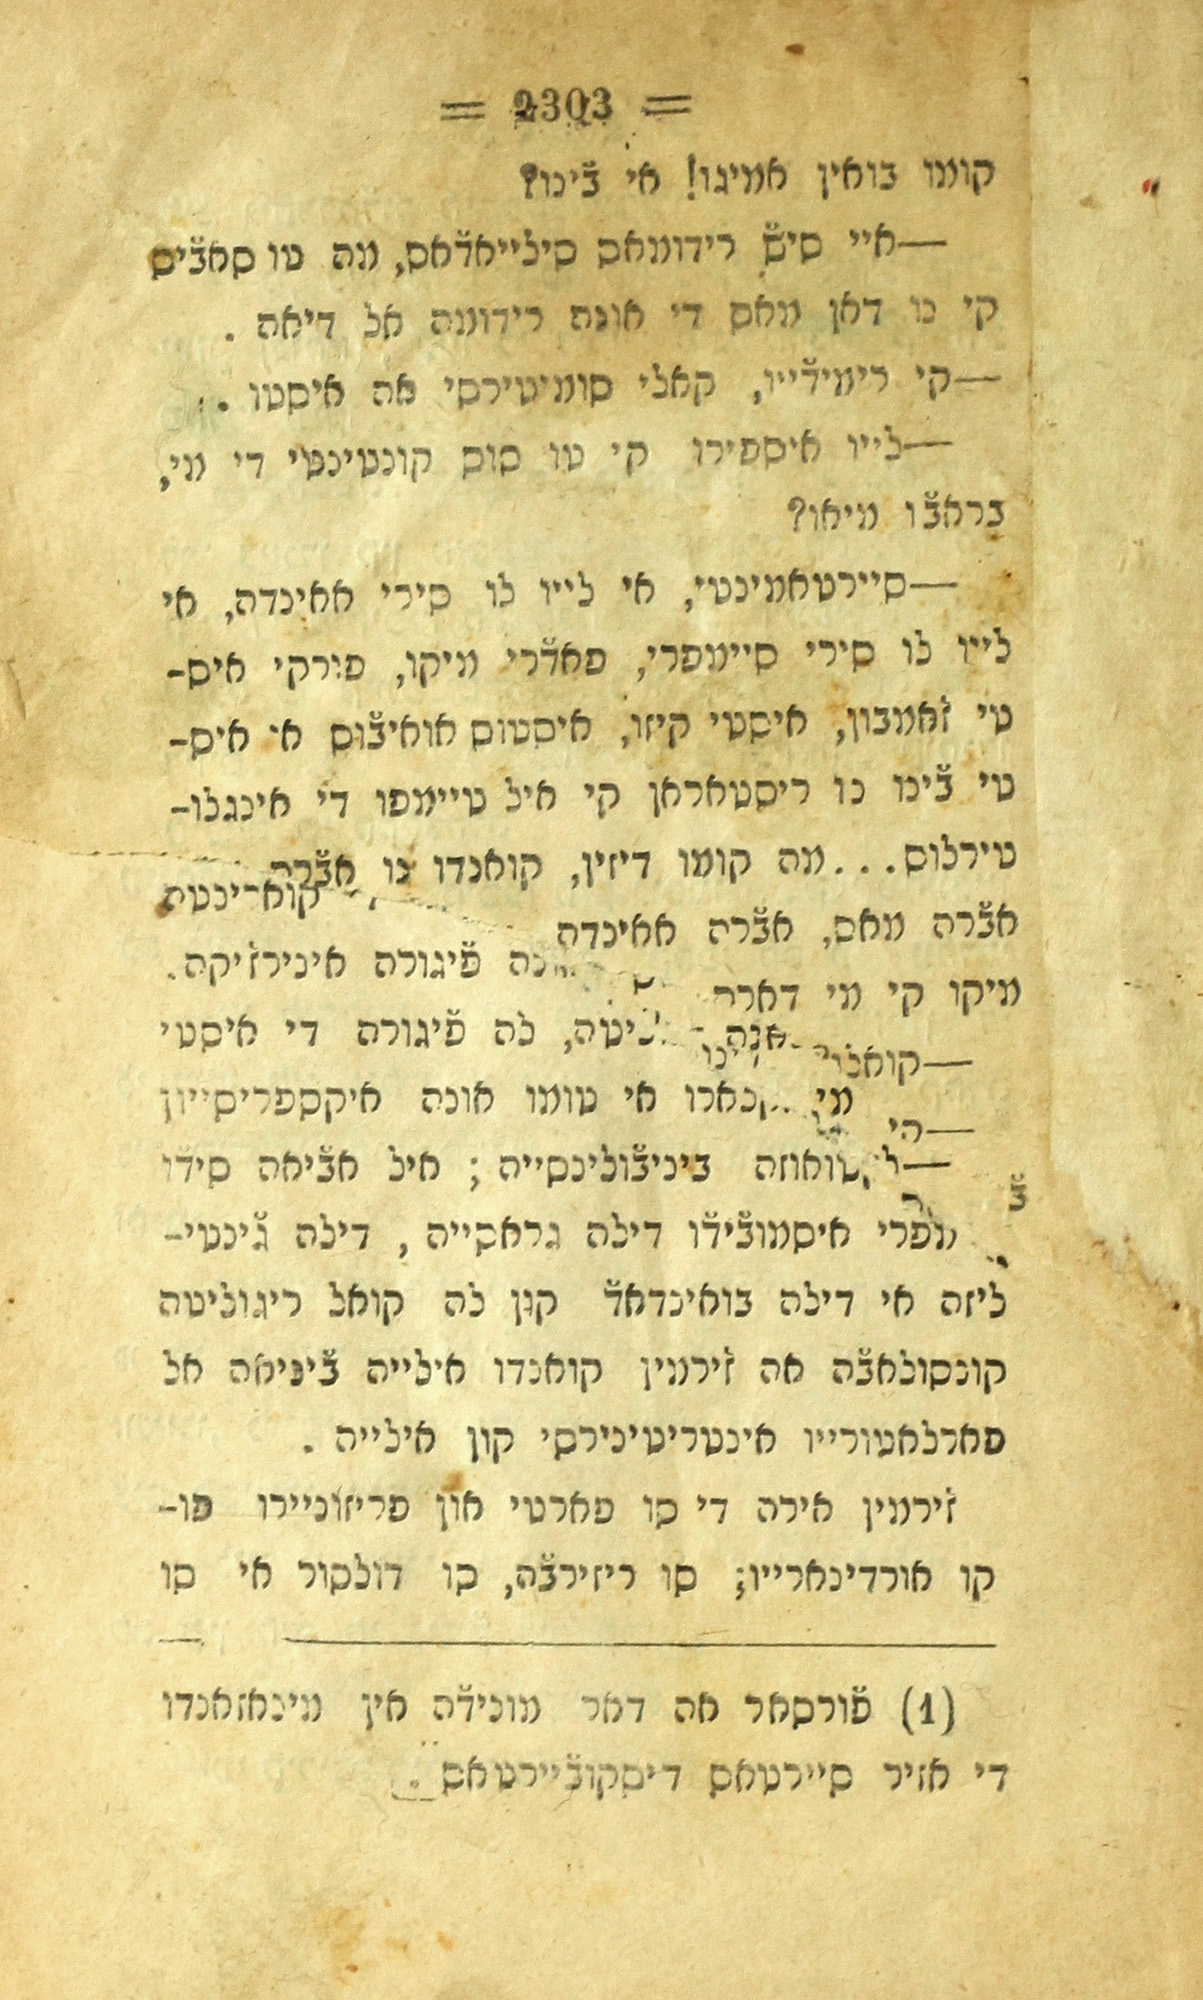 = 2303 =
קומו בואין אמיגו! אי ב̆ינו?
—איי סיש̆ רידומאס סיללייאד̆אס, מה טו סאב̆יס
קי נו דאן מאס די אונה רידומה אל דיאה .
—קי רימיד̆ייו, קאלי סומיטירסי אה איסטו .
—לייו איספירו קי טו סוס קונטינטי די מי,
בראב̆ו מיאו?
—סיירטאמינטי, אי לייו לו סירי אאינדה, אי
לייו לו סירי סיימפרי, פאד̆רי מיקו, פורקי איס-
טי ז̆אמבון, איסטי קיזו, איסטוס אואיב̆וס אי איס-
טי ב̆ינו נו ריסטאראן קי איל טיימפו די אינגלו-
טירלוס... מה קומו דיזין, קואנדו נו אב̆רה
קוארינטה
אב̆רה מאס, אב̆רה אאינדה
פ̆יגורה אינירז̆יקה.
מיקו קי מי
לה פ̆יגורה די איסטי
אי טומו אונה איקספריסייון
ביניב̆ולינסייה ; איל אב̆יאה סידו
איסמוב̆יד̆ו דילה גראסייה , דילה ג̆ינטי-
ליזה אי דילה בואינדאד̆ קון לה קואל ריגוליטה
קונסולאב̆ה אה ז̆ירמין קואנדו אילייה ב̆יניאה אל
פארלאטורייו אינטריטינירסי קון אילייה .
ז̆ירמין אירה די סו פארטי און פריזוניירו פו-
קו אורדינארייו; סו ריזירב̆ה, סו דולסור אי סו
(1) פ̆ורסאר אה דאר מוניד̆ה אין מינאזאנדו
די אזיר סיירטאס דיסקוב̆יירטאס .